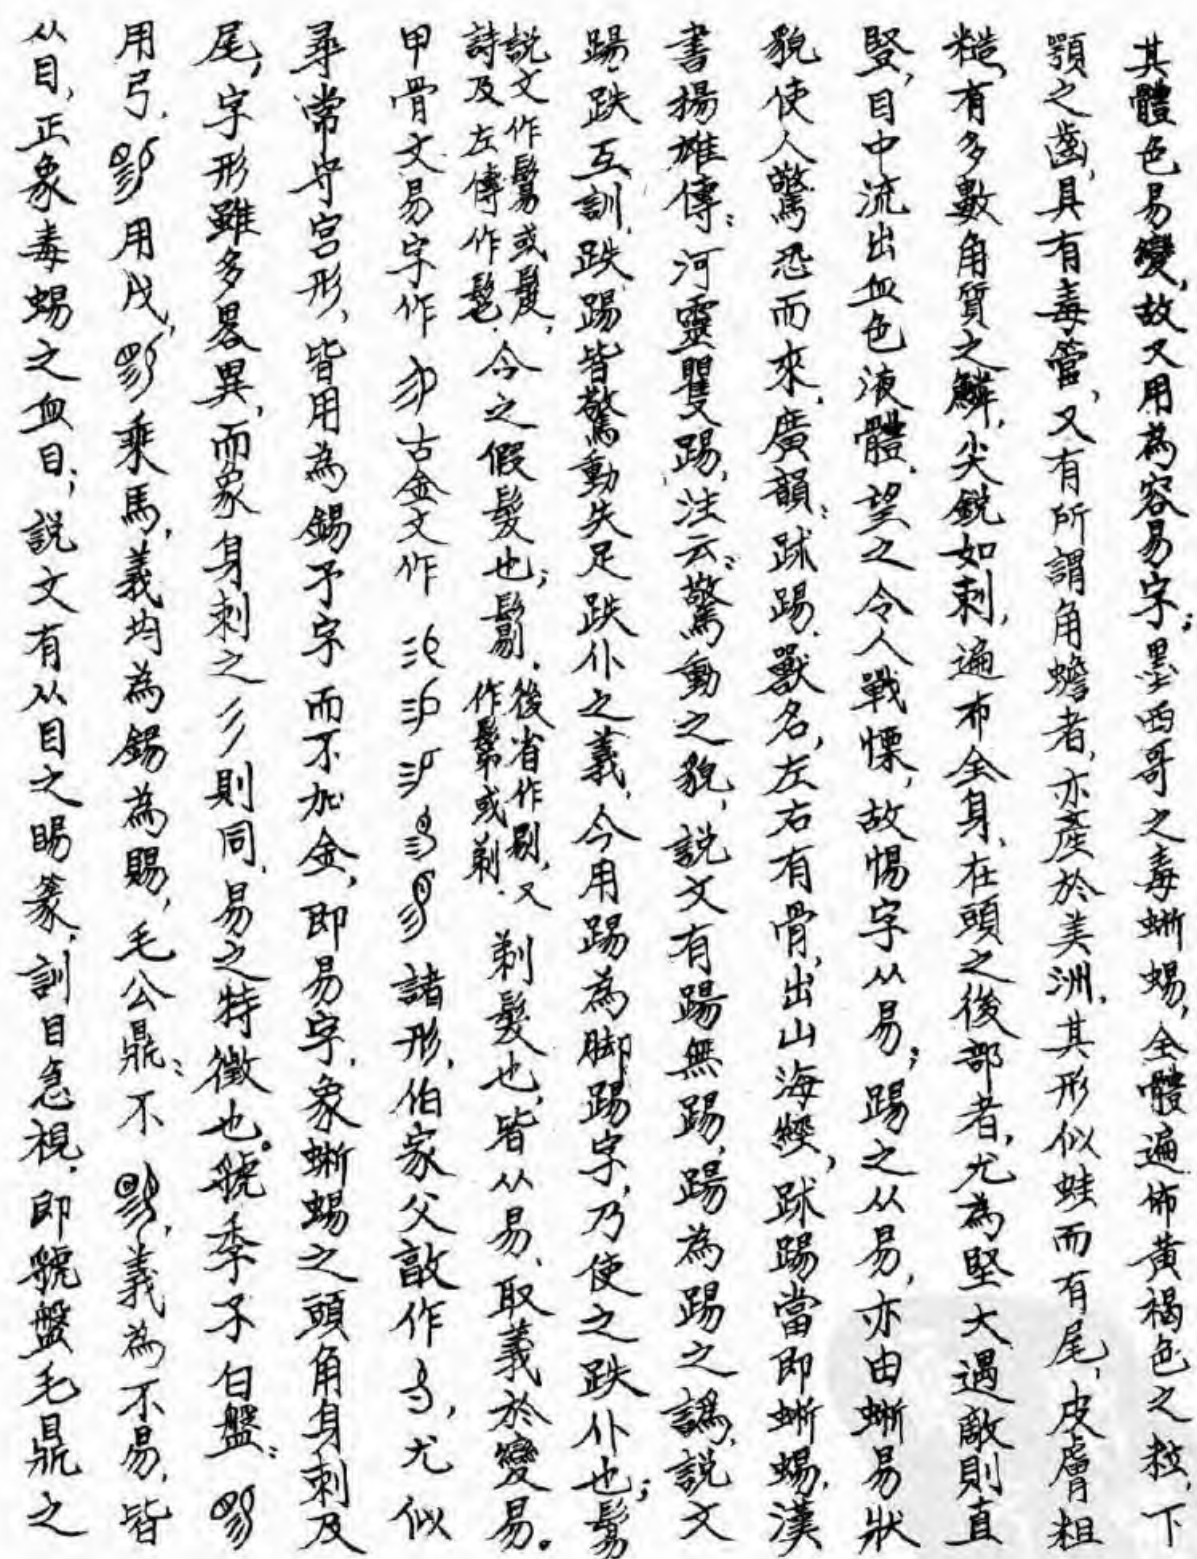 其體色易變,故又用為容易字;墨西哥之毒蜥蜴,全體遍佈黃褐色之粒,下
顎之齒,具有毒管,又有所謂角蟾者,亦產於美洲,其形似蛙而有尾,皮膚粗
糙,有多數角質之鱗,尖銳如刺,遍布全身,在頭之後部者,尤為堅大遇敵則直
豎,目中流出血色液體,望之令人戰慄,故惕字从易;踢之从易,亦由蜥易狀
貌使人驚恐而來,廣韻:䟣踢,獸名,左右有骨,出山海經,䟣踢當即蜥蜴,漢
書揚雄傳:河靈矍踢,注云:驚動之貌,說文有踼無踢,踼為踢之譌,說文
踼,跌互訓,跌踢皆驚動失足跌仆之義,今用踢為脚踢字,乃使之跌仆也;髢
說文作鬄或髲,
詩及左傳作髢,今之假髮也;鬄,後省作剔,又
作鬀或剃,剃髮也,皆从易,取義於變易。
甲骨文易字作 古金文作 諸形,伯家父敦作 ,尤似
尋常守宮形,皆用為錫予字而不加金,即易字,象蜥蜴之頭角身刺及
尾,字形雖多畧異,而象身刺之彡則同,易之特徵也。虢季子白盤:
用弓, 用戉, 乘馬,義均為錫為賜,毛公鼎:不 ,義為不易,皆
从目,正象毒蜴之血目;說文有从目之賜篆,訓目急視,即虢盤毛鼎之